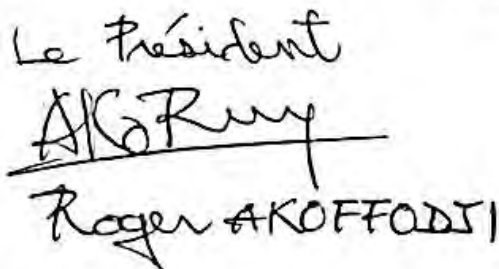 Le Président
Roger AKOFFODJI